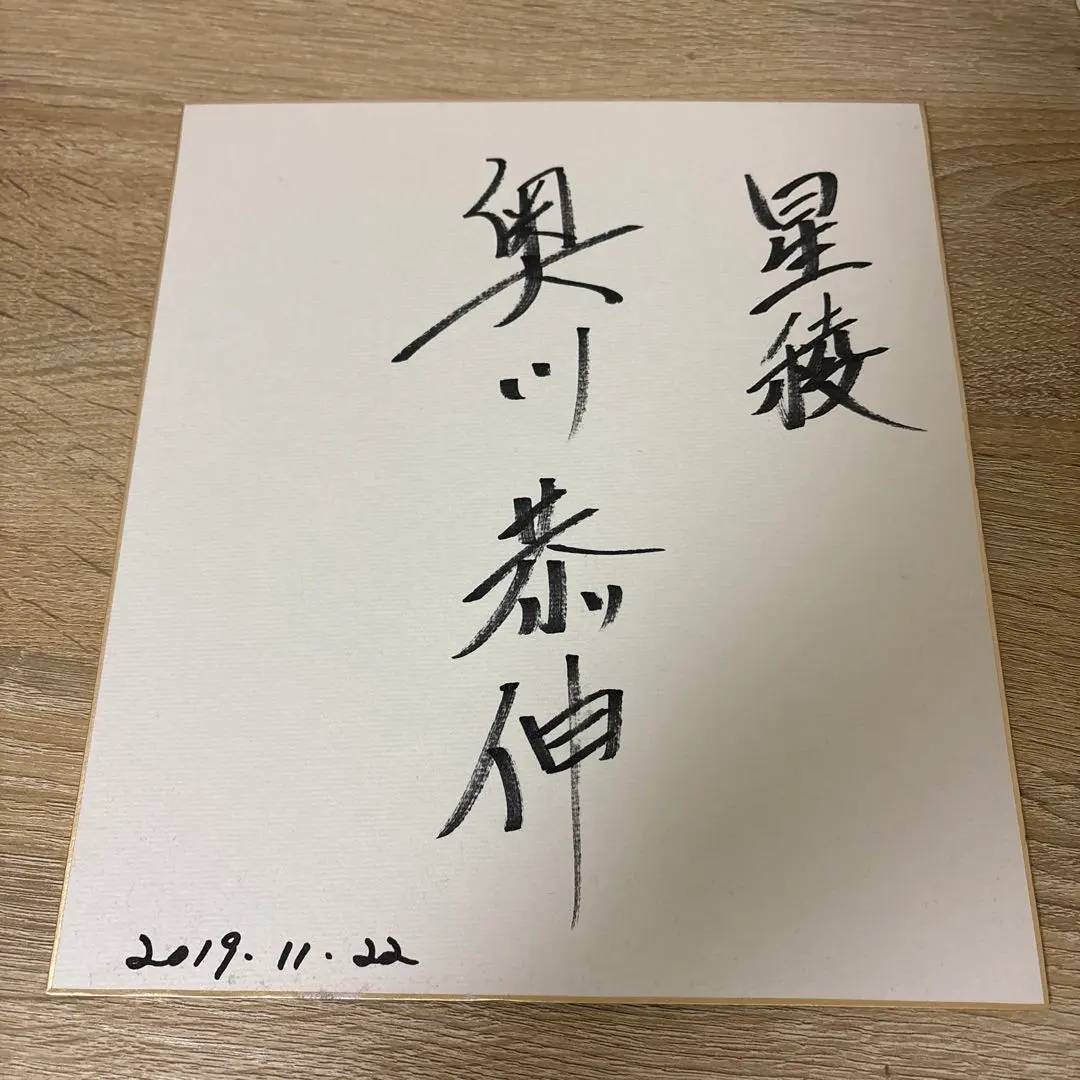 星稜
奥川恭伸
2019.11.22